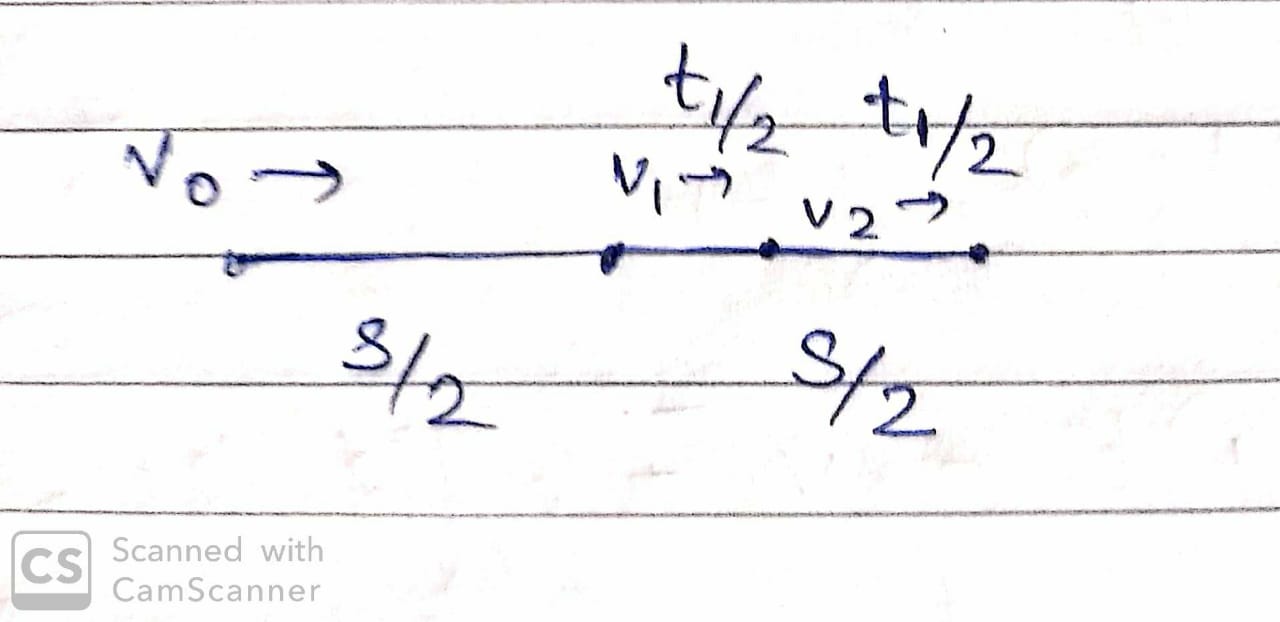 t₁/2 t₁/2
V₀ → V₁ → V₂ →
S/2 S/2
CS Scanned with
CamScanner